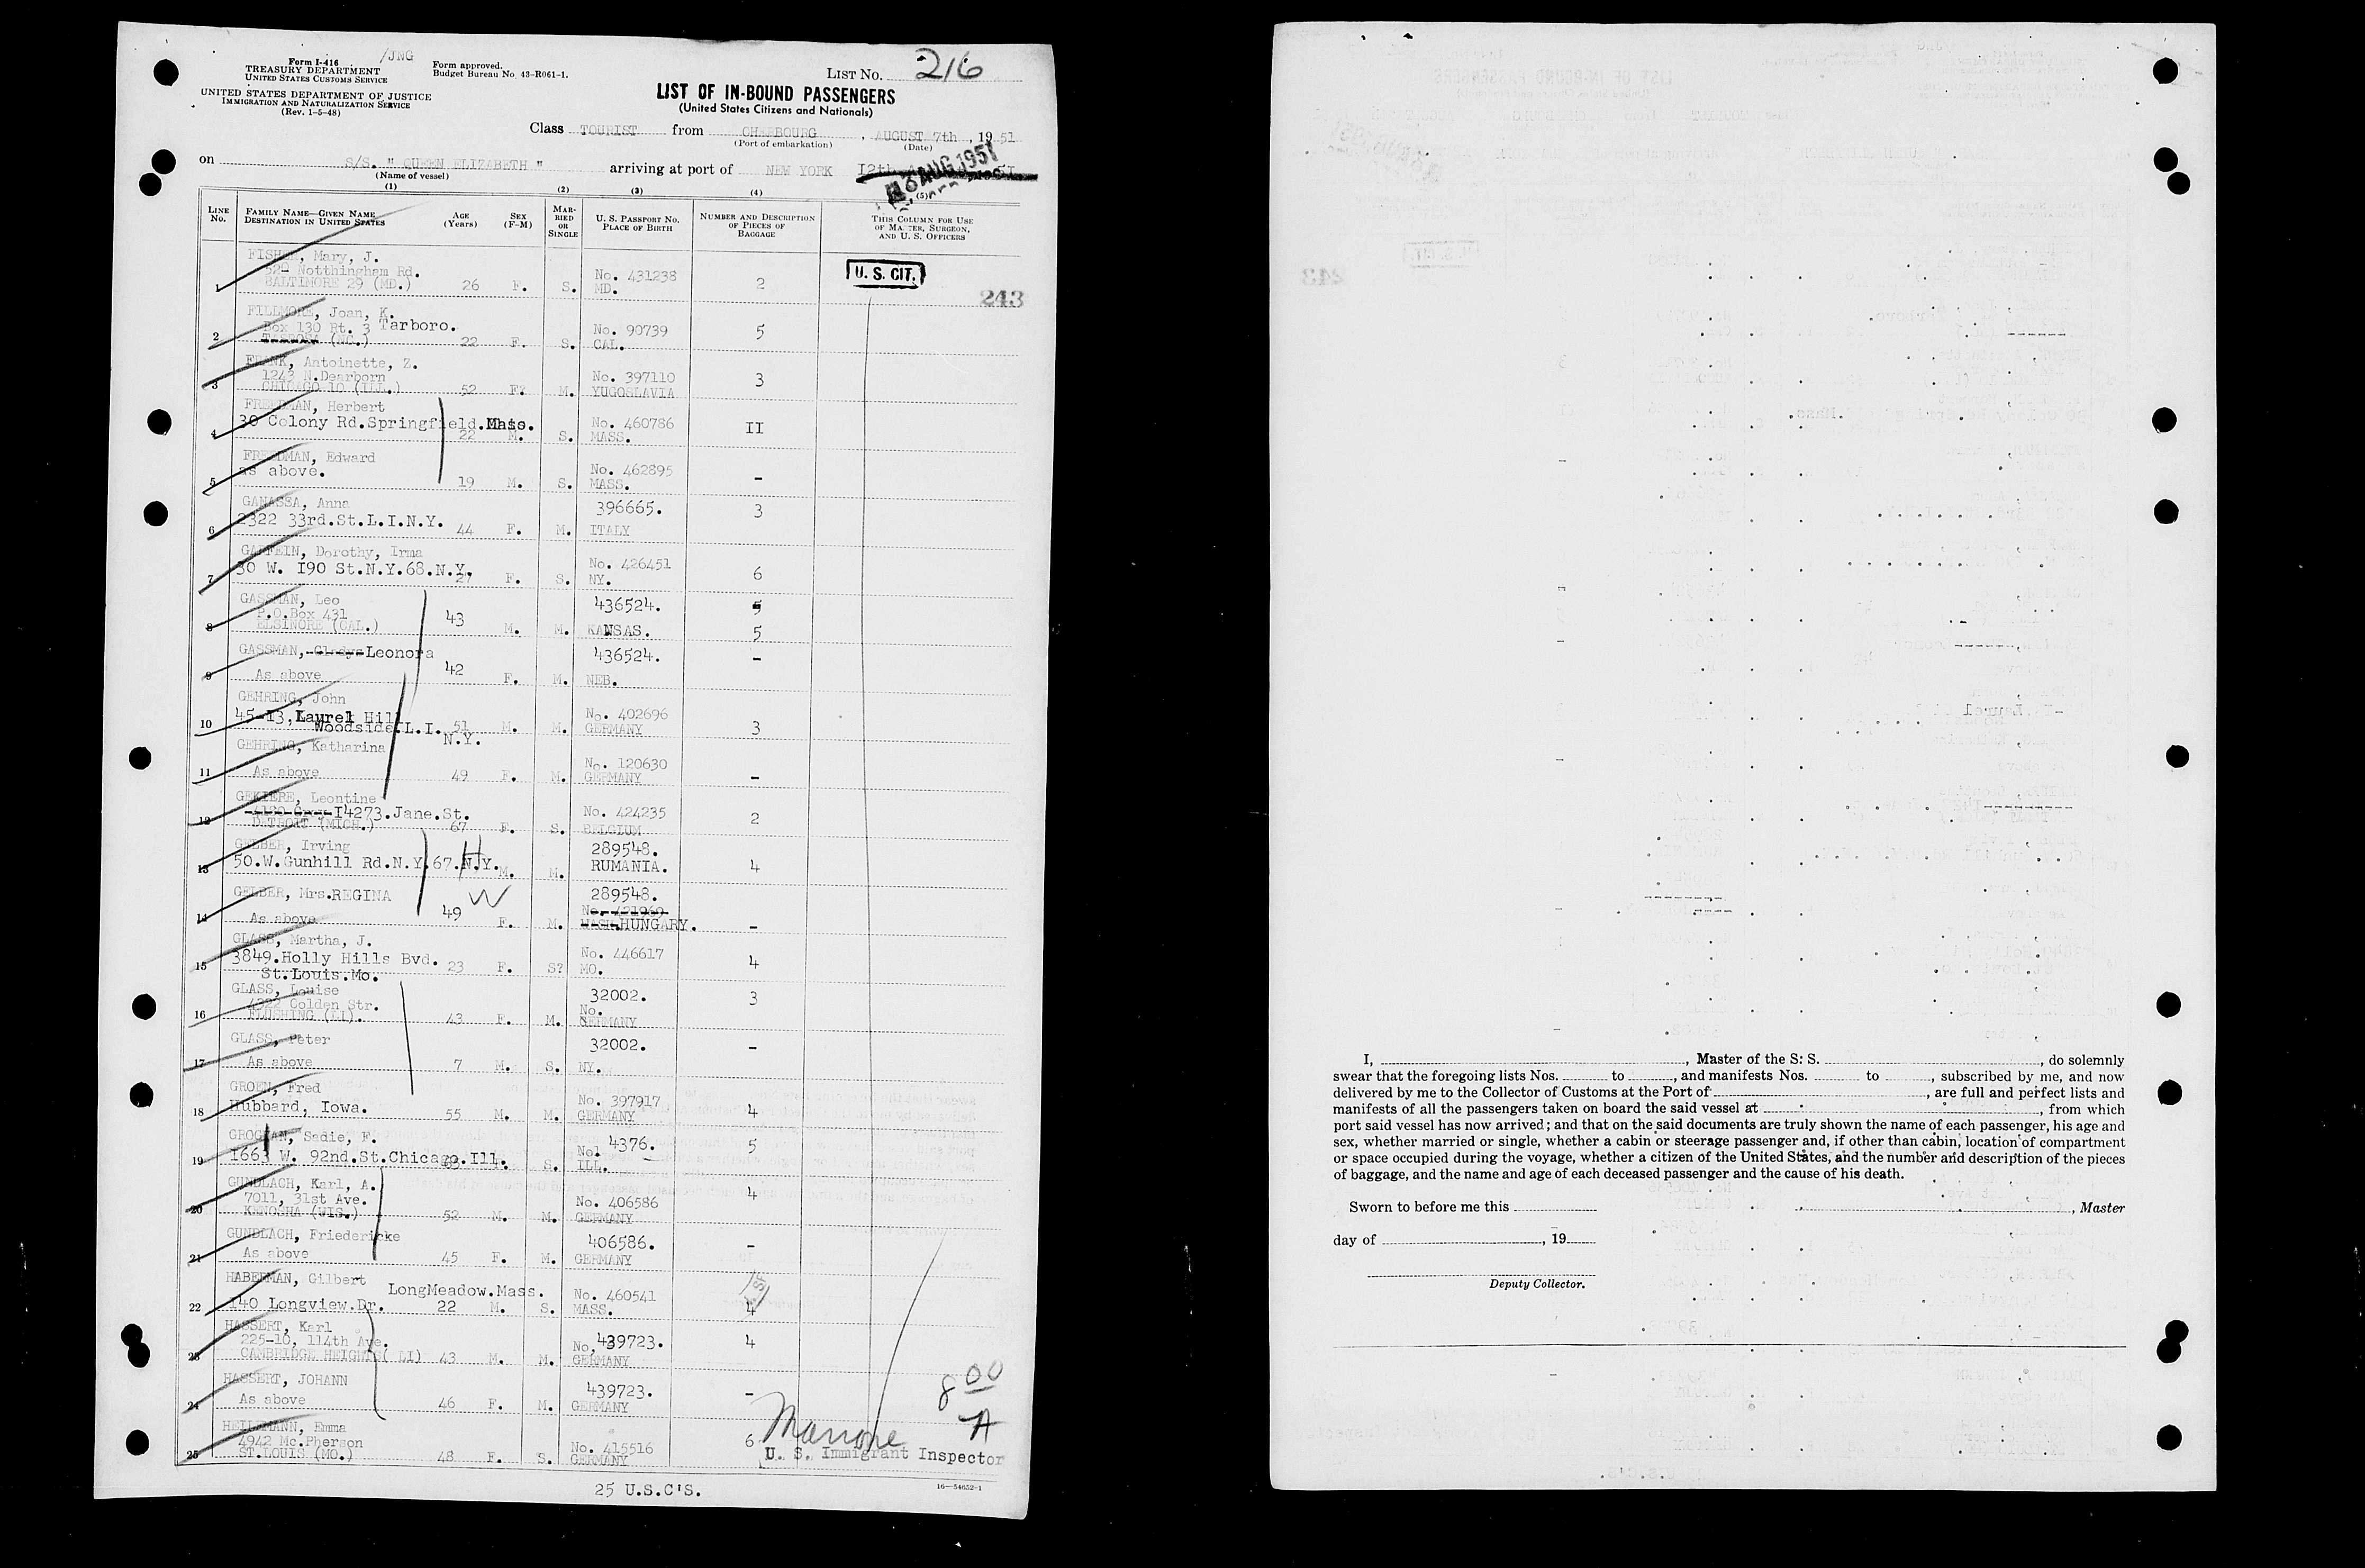 Form I-416 /JNG
TREASURY DEPARTMENT
UNITED STATES CUSTOMS SERVICE
UNITED STATES DEPARTMENT OF JUSTICE
IMMIGRATION AND NATURALIZATION SERVICE
(Rev. 1-5-48)
Form approved.
Budget Bureau No. 43-R061-1.
LIST NO. 216
LIST OF IN-BOUND PASSENGERS
(United States Citizens and Nationals)
Class TOURIST from CHERBOURG, AUGUST 7th, 19 51
(Port of embarkation) (Date)
on S/S. " QUEEN ELIZABETH " arriving at port of NEW YORK 12th
(Name of vessel)
AUG 1951
(1) (2) (3) (4) (5)
LINE NO. FAMILY NAME—GIVEN NAME DESTINATION IN UNITED STATES AGE (Years) SEX (F-M) MARRIED OR SINGLE U. S. PASSPORT NO. PLACE OF BIRTH NUMBER AND DESCRIPTION OF PIECES OF BAGGAGE THIS COLUMN FOR USE OF MASTER, SURGEON, AND U. S. OFFICERS
U. S. CIT.
243
1 FISHER, Mary, J.
Notthingham Rd.
BALTIMORE 29 (MD.) 26 F. S. No. 431238 MD. 2
2 FILLMORE, Joan, K.
Box 130 Rt. 3 Tarboro.
(NC.) 22 F. S. No. 90739 CAL. 5
3 FRANK, Antoinette, Z.
1243 N.Dearborn
CHICAGO 10 (ILL.) 52 F? M. No. 397110 YUGOSLAVIA 3
4 FREEDMAN, Herbert
30 Colony Rd.Springfield.Mass.
22 M. S. No. 460786 MASS. II
5 FREEDMAN, Edward
as above.
19 M. S. No. 462895 MASS. -
6 GANASSA, Anna
2322 33rd.St.L.I.N.Y. 44 F. M. 396665. ITALY 3
7 GARFEIN, Dorothy, Irma
30 W. I90 St.N.Y.68.N.Y. 27 F. S. No. 426451 NY. 6
8 GASSMAN, Leo
P.O.Box 431
ELSINORE (CAL.) 43 M. M. 436524. KANSAS. 5
9 GASSMAN, Gladys Leonora
As above 42 F. M. 436524. NEB. -
10 GEHRING, John
45-13, Laurel Hill
Woodside.L.I. N.Y. 51 M. M. No. 402696 GERMANY 3
11 GEHRING, Katharina
As above 49 F. M. No. 120630 GERMANY -
12 GEKIERE, Leontine
I4273.Jane.St.
DETROIT (MICH.) 67 F. S. No. 424235 BELGIUM 2
13 GELBER, Irving
50.W.Gunhill Rd.N.Y.67.N.Y. H M. M. 289548. RUMANIA. 4
14 GELBER, Mrs.REGINA W
As above 49 F. M. 289548. HUNGARY. -
15 GLASS, Martha, J.
3849.Holly Hills Bvd.
St.Louis.Mo. 23 F. S? No. 446617 MO. 4
16 GLASS, Louise
Colden Str.
FLUSHING (LI). 43 F. M. 32002. No. GERMANY 3
17 GLASS, Peter
As above 7 M. S. 32002. NY. -
18 GROEN, Fred
Hubbard, Iowa. 55 M. M. No. 397917 GERMANY 4
19 GROGHAN, Sadie, F.
1663 W. 92nd.St.Chicago.Ill. S. No. 4376. ILL. 5
20 GUNDLACH, Karl, A.
7011, 31st Ave.
KENOSHA (WIS.) 52 M. M. No. 406586 GERMANY 4
21 GUNDLACH, Friedericke
As above 45 F. M. 406586. GERMANY -
22 HABERMAN, Gilbert
LongMeadow.Mass.
140 Longview.Dr. 22 M. S. No. 460541 MASS. 4
23 HASSERT, Karl
225-10, 114th Ave.
CAMBRIDGE HEIGHTS( LI) 43 M. M. No. 439723. GERMANY 4
24 HASSERT, JOHANN
As above 46 F. M. 439723. GERMANY -
25 HEILEMANN, Emma
4942 Mc.Pherson
ST.LOUIS (MO.) 48 F. S. No. 415516 GERMANY 6
8 00
A
U. S. Immigrant Inspector
25 U.S.C'S.
16—54652-1
I, , Master of the S. S. , do solemnly
swear that the foregoing lists Nos. to , and manifests Nos. to , subscribed by me, and now
delivered by me to the Collector of Customs at the Port of , are full and perfect lists and
manifests of all the passengers taken on board the said vessel at , from which
port said vessel has now arrived; and that on the said documents are truly shown the name of each passenger, his age and
sex, whether married or single, whether a cabin or steerage passenger and, if other than cabin, location of compartment
or space occupied during the voyage, whether a citizen of the United States, and the number and description of the pieces
of baggage, and the name and age of each deceased passenger and the cause of his death.
Sworn to before me this , Master
day of , 19
Deputy Collector.